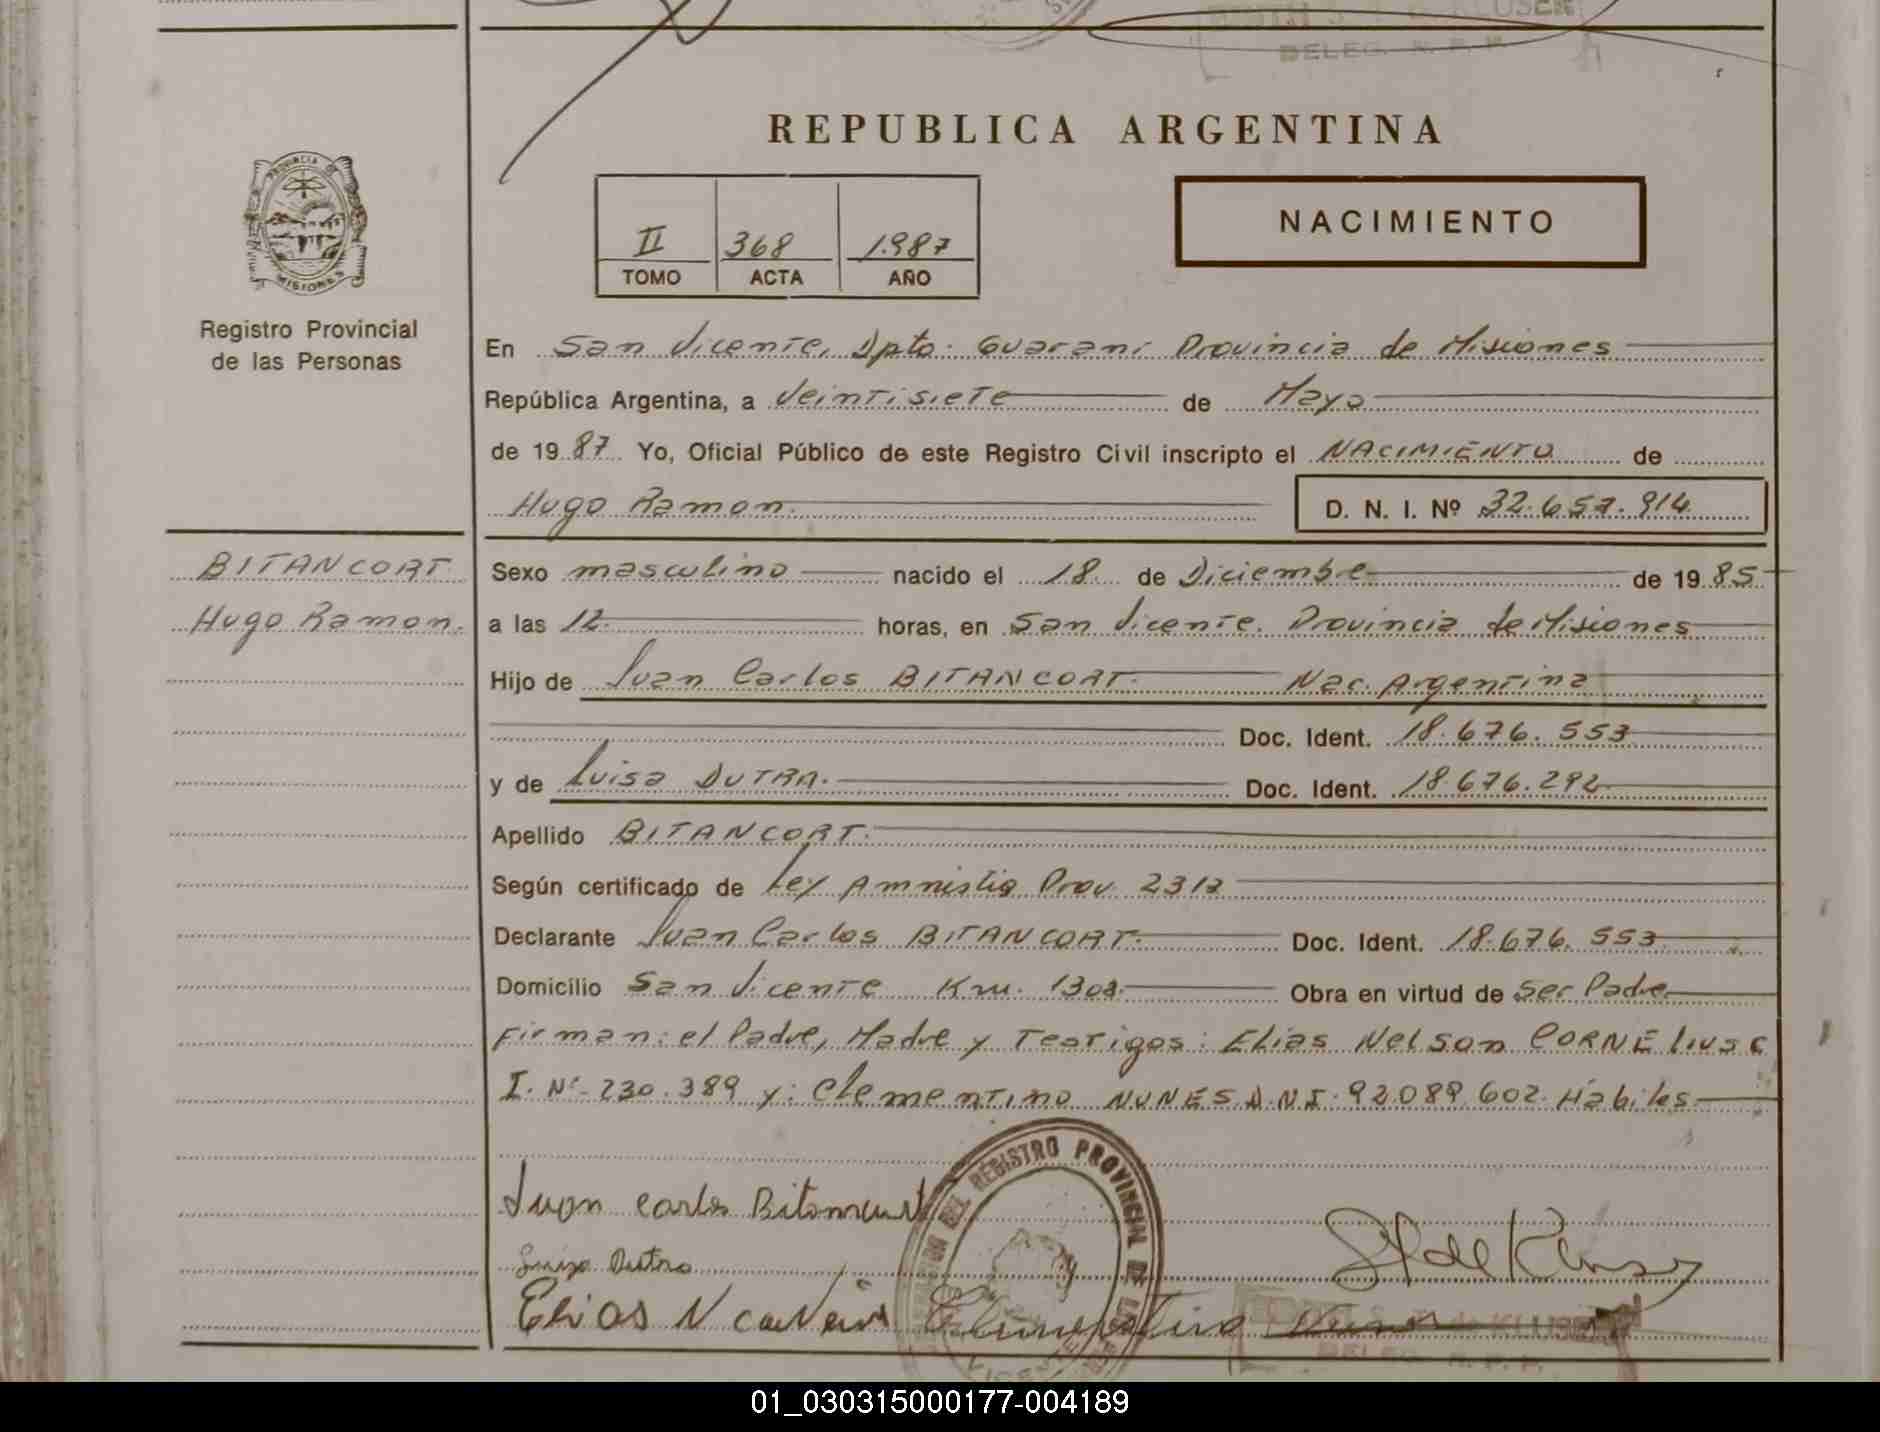 KLUSER
DELEG. R. P. P.
REPUBLICA ARGENTINA
PROVINCIA DE MISIONES
II 368 1.987
TOMO ACTA AÑO
NACIMIENTO
Registro Provincial
de las Personas
En San Vicente, Dpto. Guarani Provincia de Misiones
República Argentina, a Veintisiete de Mayo
de 1987 Yo, Oficial Público de este Registro Civil inscripto el NACIMIENTO de
Hugo Ramon. D. N. I. Nº 32.657.914
BITANCORT
Hugo Ramon.
Sexo masculino nacido el 18 de Diciembre de 1985
a las 12. horas, en San Vicente. Provincia de Misiones
Hijo de Juan Carlos BITANCORT. Nac. Argentina
Doc. Ident. 18.676.553
y de Luisa DUTRA. Doc. Ident. 18.676.292
Apellido BITANCORT.
Según certificado de Ley Amnistia Prov. 2312
Declarante Juan Carlos BITANCORT. Doc. Ident. 18.676.553
Domicilio San Vicente Km. 1308. Obra en virtud de Ser Padre
Firman: el Padre, Madre y Testigos: Elias Nelson CORNElius C
I. Nº 230.389 y: Clementino NUNES D.N.I. 92.089.602. Hábiles.
DEL REGISTRO PROVINCIAL DE LAS
Juan Carlos Bitancurt
Luiza Dutra
Elias N
Clementino Nunes
de KLUSER
DELEG. R. P. P.
01_030315000177-004189